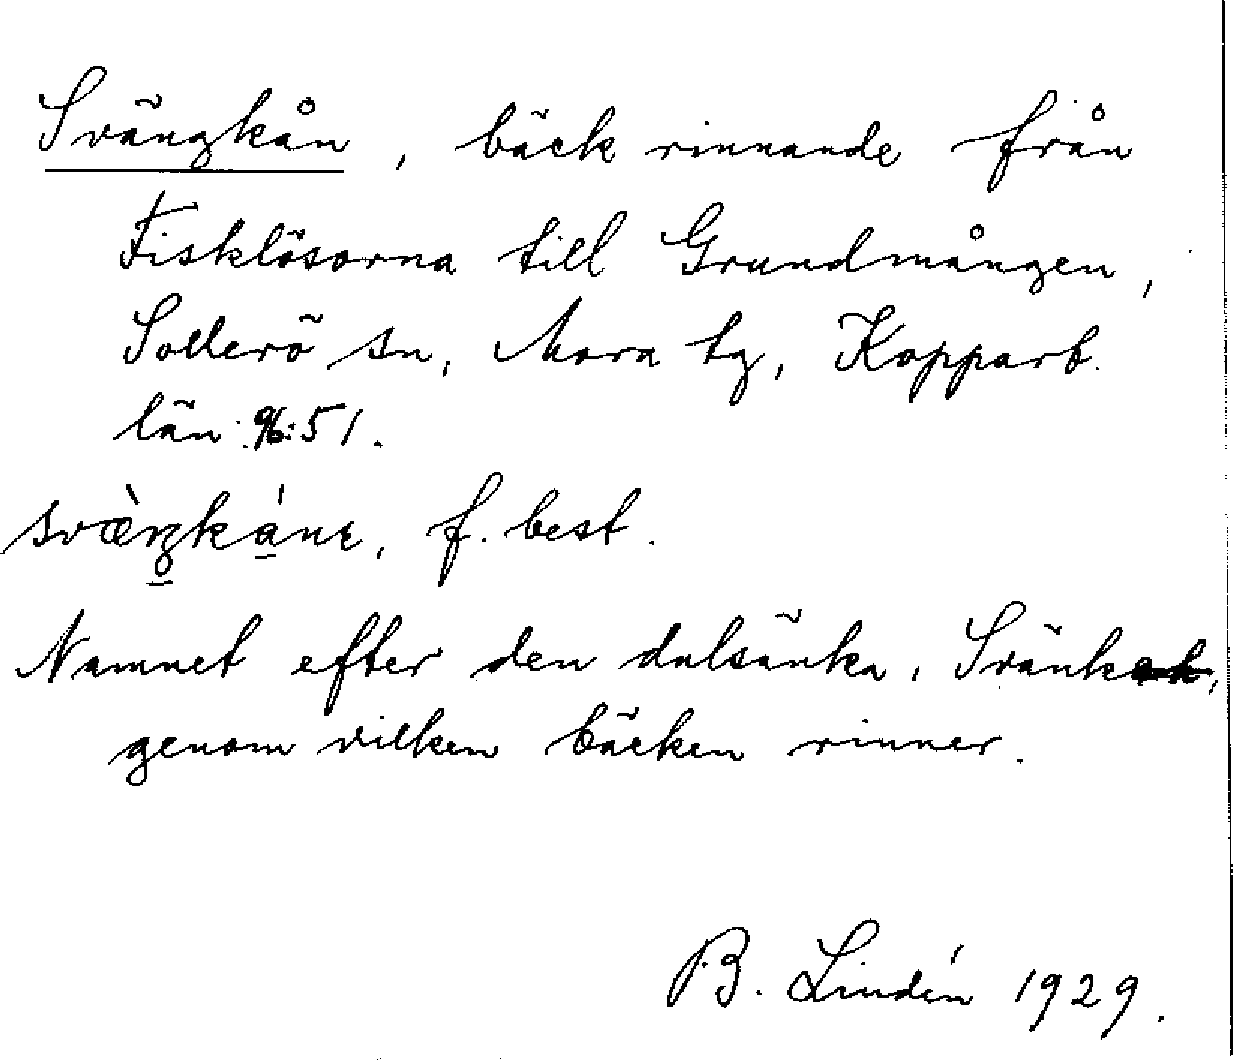 Svängkån, bäck rinnande från
Fisklösorna till Grundmången,
Sollerö sn, Mora tg, Kopparb.
län. 96:51.
f. best.
Namnet efter den dalsänka, Svänk,
genom vilken bäcken rinner.
B. Lindén 1929.